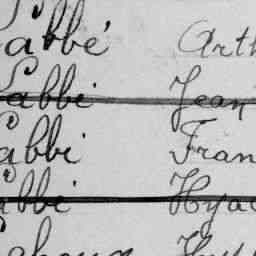 Labbé Arth
Labbé Jean
abbé Fran
abbé Hyac